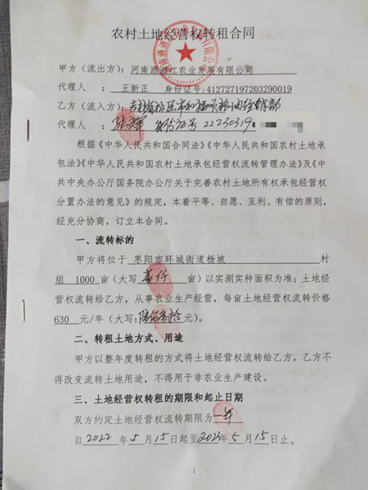 农村土地经营权转租合同
甲方(流出方):河南酒酒红农业发展有限公司
代理人: 王新正 身份证号:412727197203290019
乙方(流入方):
代理人: 身份证号 22250319
根据《中华人民共和国合同法》《中华人民共和国农村土地承
包法》《中华人民共和国农村土地承包经营权流转管理办法》及《中
共中央办公厅国务院办公厅关于完善农村土地所有权承包经营权
分置办法的意见》的规定,本着平等、自愿、互利、有偿的原则,
经充分协商,订立本合同。
一、流转标的
甲方将位于 枣阳市环城街道杨坡 村
组 1000 亩(大写 壹仟 亩)以实测实种面积为准;土地经
营权流转给乙方,从事农业生产经营,每亩土地经营权流转价格
630 元/年(大写:陆佰叁拾元)。
二、转租土地方式、用途
甲方以整年度转租的方式将土地经营权流转给乙方,乙方不
得改变流转土地用途,不得用于非农业生产建设。
三、土地经营权转租的期限和起止日期
双方约定土地经营权流转期限为 一年
自2022年5月15日起至2023年5月15日止。
1